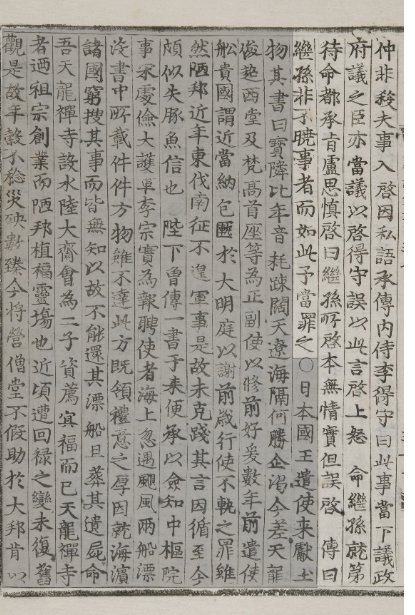 仲非殺夫事入啓因私語承傳內侍李得守曰此事當下議政
府議之臣亦當議以啓得守誤以此言啓上怒命繼孫歸第
待命都承旨盧思愼啓曰繼孫所啓本無情實但誤啓傳曰
繼孫非不曉事者而如此予當罪之○日本國王遣使來獻土
物其書曰寶隣比年音耗踈闊天遼海隔何勝企渴今差天龍
俊超西堂及梵高首座等為正副使以修前好爰數年前遣使
舩貴國謂近當納包匭於大明庭以謝前歲行使不軌之罪雖
然陋邦近年東伐南征不遑軍事是故未克踐其言因循至今
頗似失豚魚信也陛下曾傳一書于來便承以僉知中樞院
事宋處儉大護軍李宗實為報聘使者海上忽遇颶風兩船漂
沒書中所載件件方物雖不達此方旣領禮意之厚因乾海濱
諸國窮搜其事而皆無知以故不能還其漂船且葬其遺屍命
吾天龍禪寺設水陸大齋會為二子資薦冥福而已天龍禪寺
者迺祖宗創業而陋邦植福靈場也近頃遭回祿之變未復舊
觀是故年穀不稔災殃數臻今將營僧堂不假助於大邦肯以